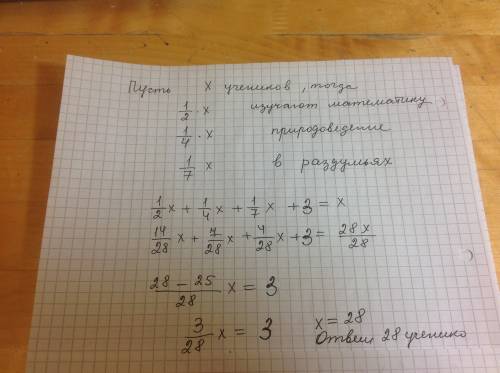 Пусть х учеников, тогда
1/2 · х изучают математику
1/4 · х природоведение
1/7 х в раздумьях
1/2 х + 1/4 х + 1/7 х + 3 = х
14/28 х + 7/28 х + 4/28 х + 3 = 28х/28
(28 − 25)/28 х = 3
3/28 х = 3 х = 28
Ответ 28 ученико